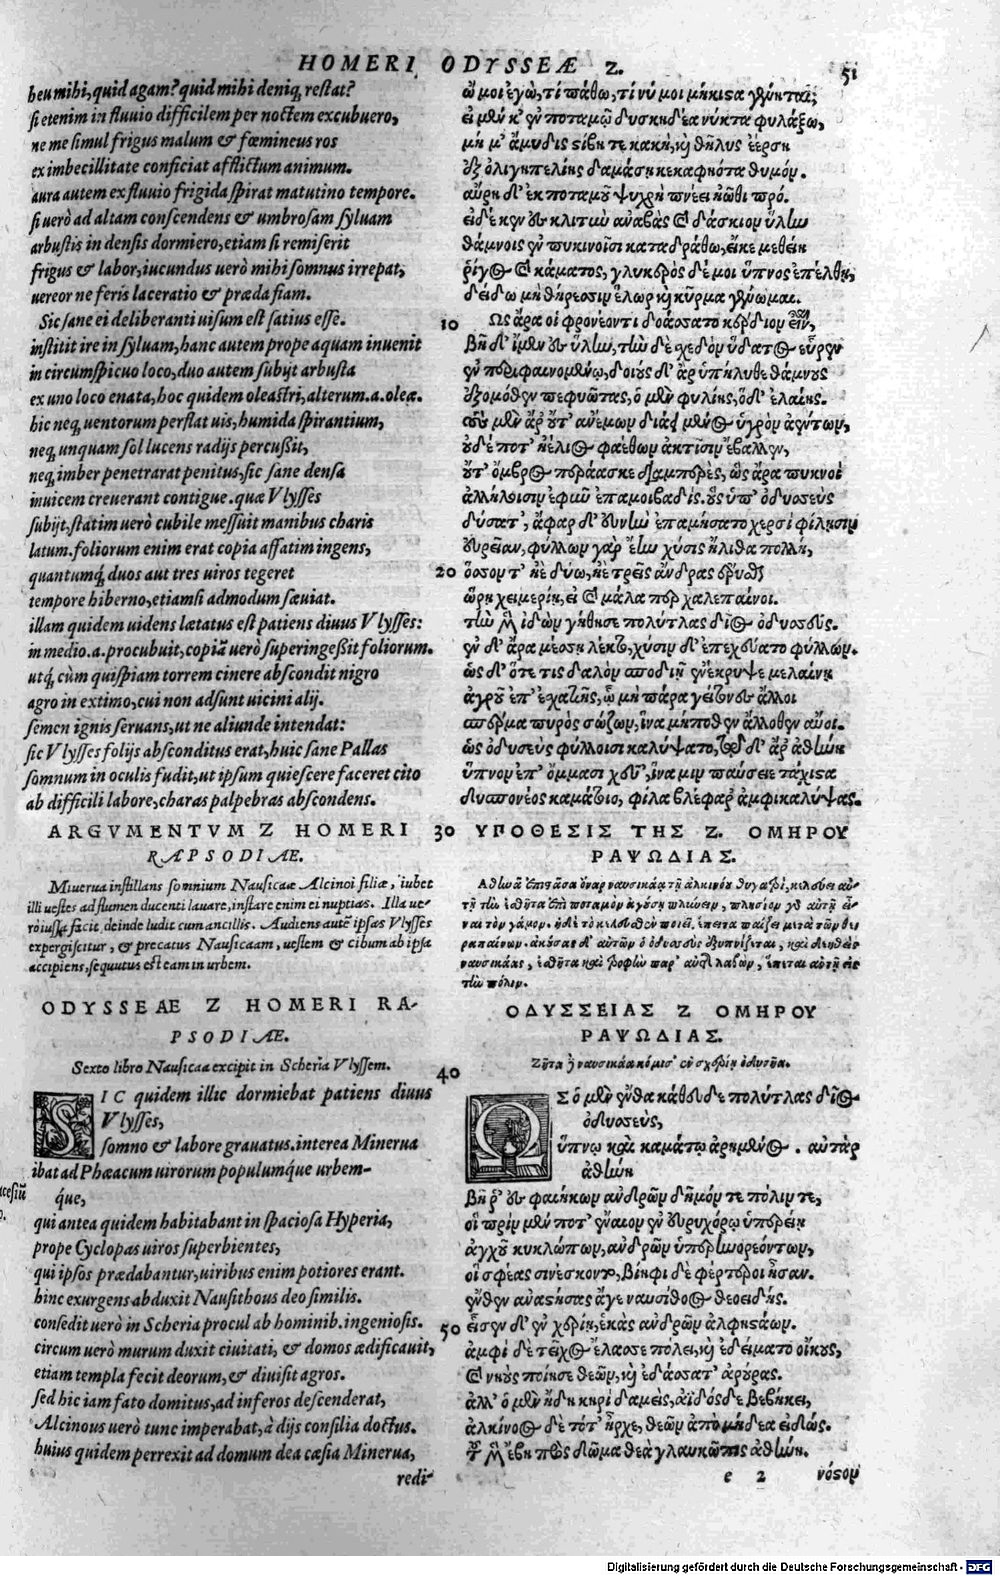 HOMERI ODYSSEÆ Z. 51
heu mihi, quid agam? quid mihi deniq; restat?
si etenim in fluuio difficilem per noctem excubuero,
ne me simul frigus malum & fœmineus ros
ex imbecillitate conficiat afflictum animum.
aura autem ex fluuio frigida spirat matutino tempore.
si uerò ad altam conscendens & umbrosam syluam
arbustis in densis dormiero, etiam si remiserit
frigus & labor, iucundus uerò mihi somnus irrepat,
uereor ne feris laceratio & præda fiam.
Sic sane ei deliberanti uisum est satius esse.
institit ire in syluam, hanc autem prope aquam inuenit
in circumspicuo loco, duo autem subijt arbusta
ex uno loco enata, hoc quidem oleastri, alterum .a. oleæ.
hic neq; uentorum perflat uis, humida spirantium,
neq; unquam sol lucens radijs percußit,
neq; imber penetrarat penitus, sic sane densa
inuicem creuerant contigue. quæ Vlysses
subijt, statim uerò cubile messuit manibus charis
latum. foliorum enim erat copia affatim ingens,
quantumq́; duos aut tres uiros tegeret
tempore hiberno, etiamsi admodum sæuiat.
illam quidem uidens lætatus est patiens diuus Vlysses:
in medio .a. procubuit, copiã uerò superingeßit foliorum.
utq́; cùm quispiam torrem cinere abscondit nigro
agro in extimo, cui non adsunt uicini alij.
semen ignis seruans, ut ne aliunde intendat:
sic Vlysses folijs absconditus erat, huic sane Pallas
somnum in oculis fudit, ut ipsum quiescere faceret cito
ab difficili labore, charas palpebras abscondens.
ARGVMENTVM Z HOMERI
RAPSODIÆ.
Minerua instillans somnium Nausicaæ Alcinoi filiæ, iubet
illi uestes ad flumen ducenti lauare, instare enim ei nuptias. Illa ue-
rò iussa facit, deinde ludit cum ancillis. Audiens autẽ ipsas Vlysses
expergiscitur, & precatus Nausicaam, uestem & cibum ab ipsa
accipiens, sequutus est eam in urbem.
ODYSSEAE Z HOMERI RA-
PSODIÆ.
Sexto libro Nausicaa excipit in Scheria Vlyssem.
SIC quidem illic dormiebat patiens diuus
Vlysses,
somno & labore grauatus. interea Minerua
ibat ad Phæacum uirorum populumq́ue urbem-
q́ue,
qui antea quidem habitabant in spaciosa Hyperia,
prope Cyclopas uiros superbientes,
qui ipsos prædabantur, uiribus enim potiores erant.
hinc exurgens abduxit Nausithous deo similis.
consedit uerò in Scheria procul ab hominib. ingeniosis.
circum uerò murum duxit ciuitati, & domos ædificauit,
etiam templa fecit deorum, & diuisit agros.
sed hic iam fato domitus, ad inferos descenderat,
Alcinous uerò tunc imperabat, à dijs consilia doctus.
huius quidem perrexit ad domum dea cæsia Minerua,
redi-
ὤ μοι ἐγὼ, τί πάθω, τί νύ μοι μήκιστα γένηται;
εἰ μέν κ' ἐν ποταμῷ δυσκηδέα νύκτα φυλάξω,
μή μ' ἄμυδις στίβη τε κακὴ, καὶ θῆλυς ἐέρση
ἐξ ὀλιγηπελίης δαμάσῃ κεκαφηότα θυμόν.
αὔρη δ' ἐκ ποταμοῦ ψυχρὴ πνέει ἠῶθι πρό.
εἰ δέ κεν ἐς κλιτὺν ἀναβὰς καὶ δάσκιον ὕλην
θάμνοις ἐν πυκινοῖσι καταδράθω, εἴ κε μεθείη
ῥίγος καὶ κάματος, γλυκερὸς δέ μοι ὕπνος ἐπέλθῃ,
δείδω μὴ θήρεσσιν ἕλωρ καὶ κῦρμα γένωμαι.
10 Ὣς ἄρα οἱ φρονέοντι δοάσσατο κέρδιον εἶναι,
βῆ δ' ἴμεν ἐς ὕλην, τὴν δὲ σχεδὸν ὕδατος εὗρεν
ἐν περιφαινομένῳ, δοιοὺς δ' ἄρ ὑπήλυθε θάμνους
ἐξομόθεν πεφυῶτας, ὁ μὲν φυλίης, ὁ δ' ἐλαίης.
τοὺς μὲν ἄρ οὔτ' ἀνέμων διάει μένος ὑγρὸν ἀέντων,
οὐδέ ποτ' ἠέλιος φαέθων ἀκτῖσιν ἔβαλλεν,
οὔτ' ὄμβρος περάασκε διαμπερὲς, ὣς ἄρα πυκνοὶ
ἀλλήλοισιν ἔφυν ἐπαμοιβαδίς. οὓς ὑπ' ὀδυσσεὺς
δύσατ', ἄφαρ δ' εὐνὴν ἐπαμήσατο χερσὶ φίλῃσιν
εὐρεῖαν, φύλλων γὰρ ἔην χύσις ἤλιθα πολλὴ,
20 ὅσσον τ' ἠὲ δύω, ἠὲ τρεῖς ἄνδρας ἔρυσθαι
ὥρῃ χειμερίῃ, εἰ καὶ μάλα περ χαλεπαίνοι.
τὴν μὲν ἰδὼν γήθησε πολύτλας δῖος ὀδυσσεύς.
ἐν δ' ἄρα μέσσῃ λέκτο, χύσιν δ' ἐπεχεύατο φύλλων.
ὡς δ' ὅτε τις δαλὸν σποδιῇ ἐνέκρυψε μελαίνῃ
ἀγροῦ ἐπ' ἐχατιῆς, ᾧ μὴ πάρα γείτονες ἄλλοι
σπέρμα πυρὸς σώζων, ἵνα μή ποθεν ἄλλοθεν αὔοι.
ὣς ὀδυσεὺς φύλλοισι καλύψατο, τῷ δ' ἄρ ἀθήνη
ὕπνον ἐπ' ὄμμασι χεῦ', ἵνα μιν παύσειε τάχιστα
δυσπονέος καμάτοιο, φίλα βλέφαρ ἀμφικαλύψας.
30 ΥΠΟΘΕΣΙΣ ΤΗΣ Ζ. ΟΜΗΡΟΥ
ΡΑΨΩΔΙΑΣ.
ΟΔΥΣΣΕΙΑΣ Ζ ΟΜΗΡΟΥ
ΡΑΨΩΔΙΑΣ.
40
ΩΣ ὁ μὲν ἔνθα καθεῦδε πολύτλας δῖος
ὀδυσσεύς,
ὕπνῳ καὶ καμάτῳ ἀρημένος. αὐτὰρ
ἀθήνη
βῆ ῥ' ἐς φαιήκων ἀνδρῶν δῆμόν τε πόλιν τε,
οἳ πρὶν μέν ποτ' ἔναιον ἐν εὐρυχόρῳ ὑπερείῃ
ἀγχοῦ κυκλώπων, ἀνδρῶν ὑπερηνορεόντων,
οἵ σφεας σινέσκοντο, βίηφι δὲ φέρτεροι ἦσαν.
ἔνθεν ἀναστήσας ἄγε ναυσίθοος θεοειδής.
50 εἷσεν δ' ἐν σχερίῃ, ἑκὰς ἀνδρῶν ἀλφηστάων.
ἀμφὶ δὲ τεῖχος ἔλασσε πόλει, καὶ ἐδείματο οἴκους,
καὶ νηοὺς ποίησε θεῶν, καὶ ἐδάσσατ' ἀρούρας.
ἀλλ' ὁ μὲν ἤδη κηρὶ δαμεὶς, ἄϊδόσδε βεβήκει,
ἀλκίνοος δὲ τότ' ἦρχε, θεῶν ἀπὸ μήδεα εἰδώς.
τοῦ μὲν ἔβη πρὸς δῶμα θεὰ γλαυκῶπις ἀθήνη.
e 2 νόστον
Digitalisierung gefördert durch die Deutsche Forschungsgemeinschaft - DFG